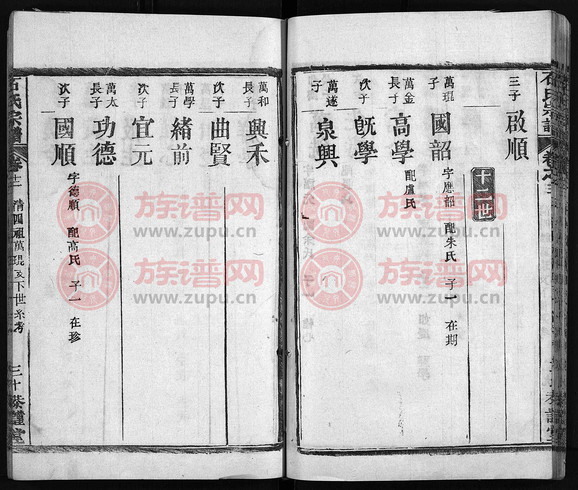 石氏宗譜
卷之三
三子
啟順
十二世
萬琨
長子
國韶
字應韶 配朱氏 子一 在期
萬金
長子
高學
配盧氏
次子
既學
萬遂
長子
泉興
萬和
長子
興禾
次子
曲賢
萬學
長子
緒前
次子
宜元
萬太
長子
功德
次子
國順
字德順 配高氏 子一 在珍
石氏宗譜
三十
族谱网
www.zupu.cn
族谱网
www.zupu.cn
族谱网
www.zupu.cn
族谱网
www.zupu.cn